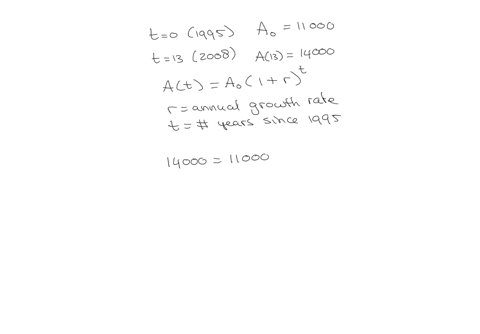 t=0 (1995) A₀ = 11000
t=13 (2008) A(13) = 14000
A(t) = A₀(1+r)ᵗ
r = annual growth rate
t = # years since 1995
14000 = 11000